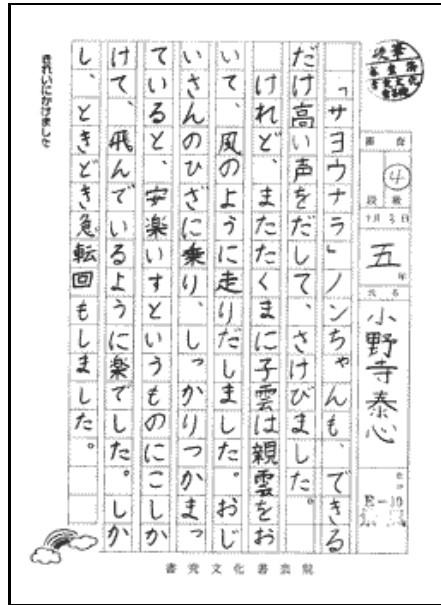 硬筆
審査
④
段級
月 日
五年
氏名
小野寺泰心
「サヨウナラ」ノンちゃんも、できる
だけ高い声をだして、さけびました。
けれど、またたくまに子雲は親雲をお
いて、風のように走りだしました。おじ
いさんのひざに乗り、しっかりつかまっ
ていると、安楽いすというものにこしか
けて、飛んでいるように楽でした。しか
し、ときどき急転回もしました。
きれいにかけました
書究文化書芸院